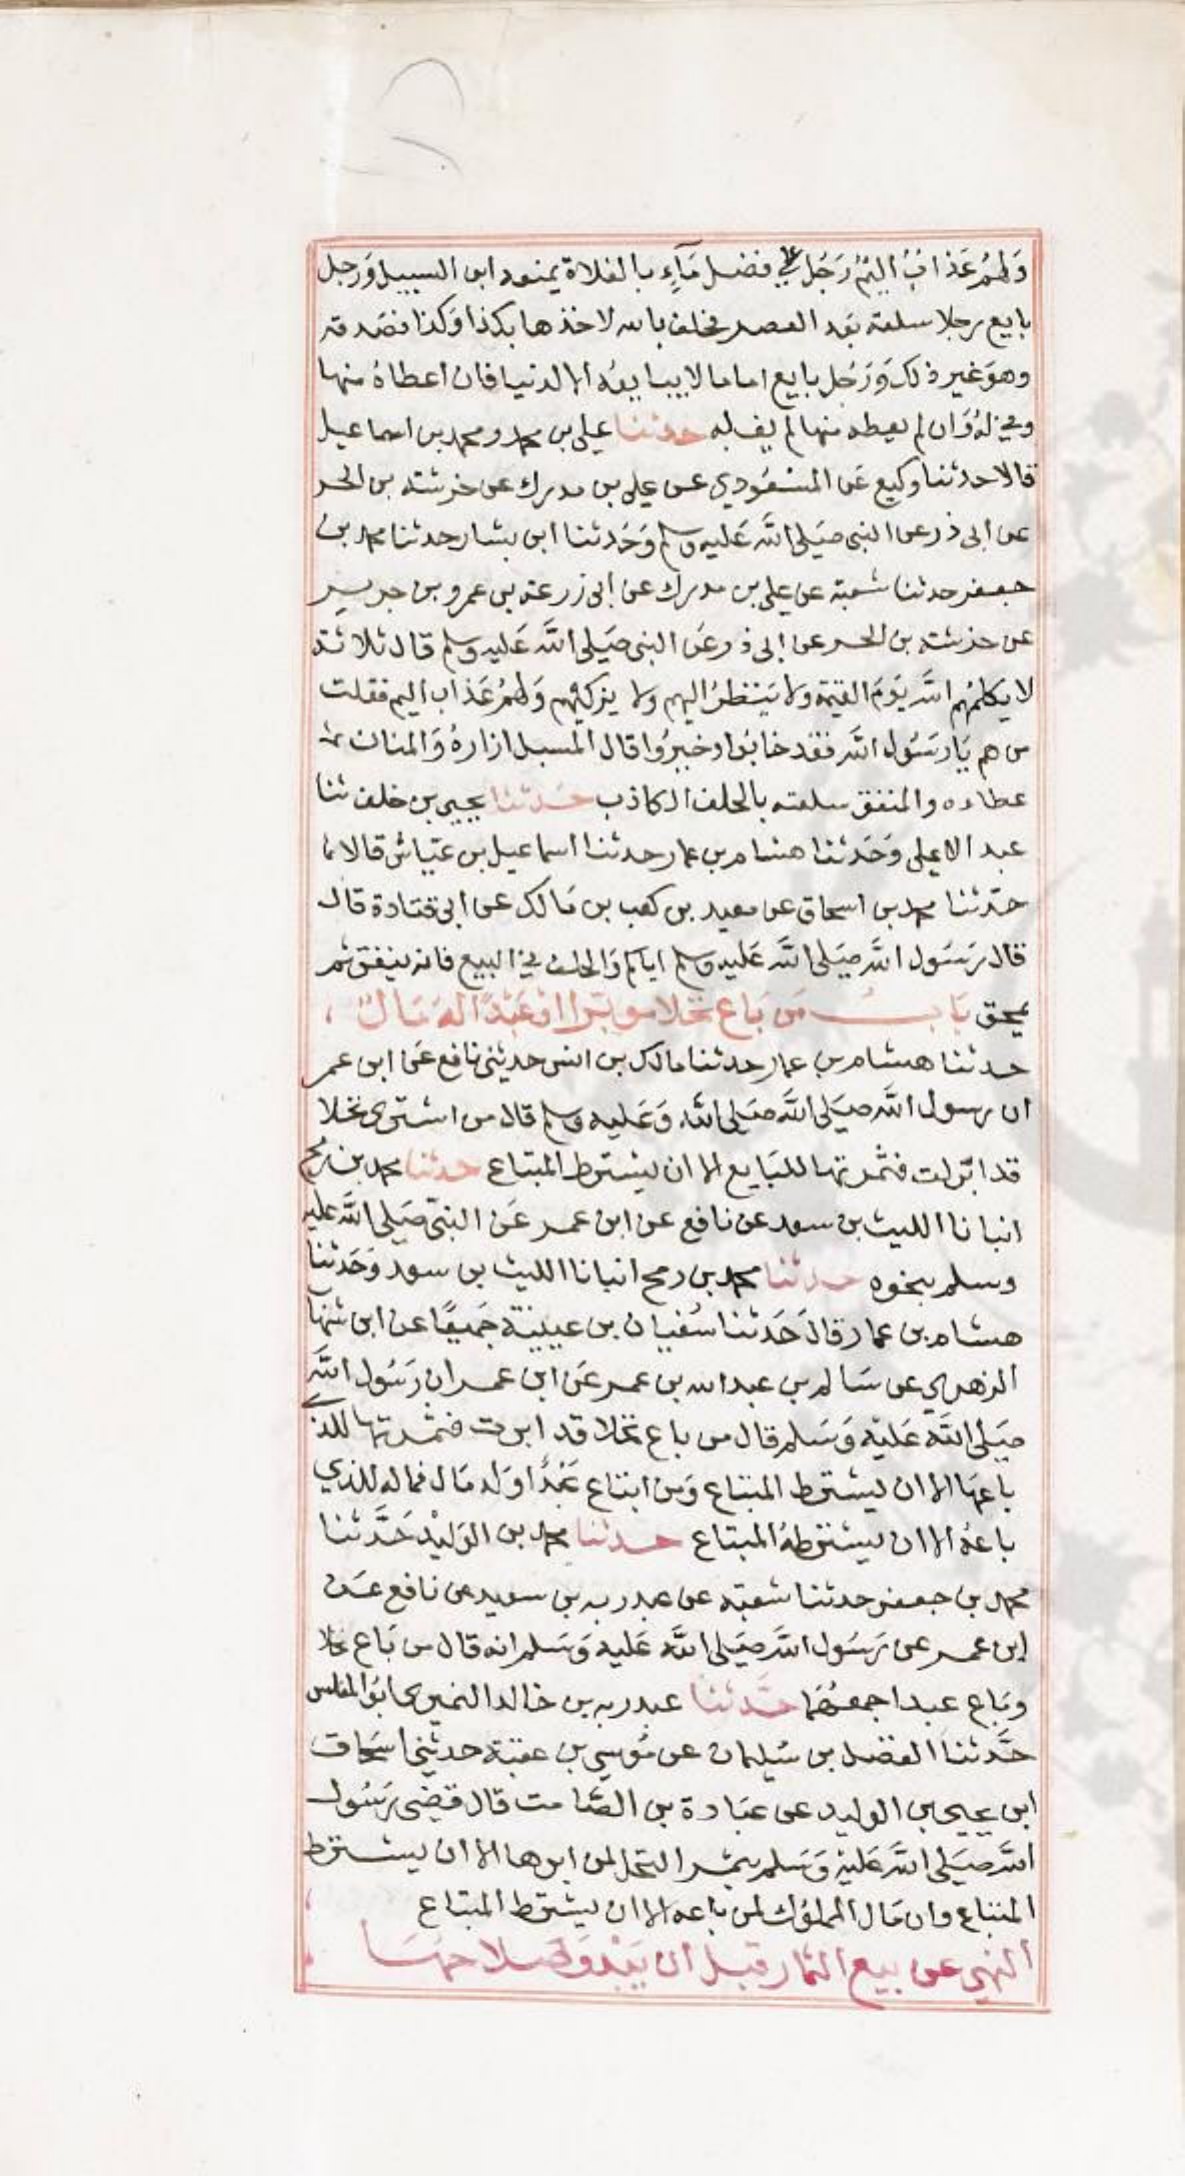 وَلهُمْ عَذابٌ اليمٌ رَجُل على فضل مَآءٍ بالفلاة يمنعه ابن السبيل وَرجل
بايع رجلا سلعته بَعد العصر فحلف بالله لاخذها بكذا وَكذا فصَدقه
وهو غير ذلك وَرَجُل بايع اماما لا يبايعُه الا لدنيا فان اعطاهُ منها
وفي لهُ وَان لم يعطه منها لم يف له حدثنا علي بن محمد ومحمد بن اسماعيل
قالا حدثنا وكيع عَن المسْعُودي عن علي بن مدرك عن خرشته بن الحر
عن ابى ذر عن النبى صَلى الله عَليه وسلم وَحَدثنا ابن بشار حدثنا محمد بن
جعفر حدثنا شعبة عن علي بن مدرك عن ابى زرعة بن عمرو بن جرير
عن خرشته بن الحر عن ابى ذر عَن النبى صَلى الله عَليه وسلم قال ثلاثة
لا يكلمُهم الله يَومَ القيمة ولا يَنظرُ اليهم ولا يزكيهم وَلهُمْ عَذاب اليم فقلت
من هم يَا رسُول الله فقد خابوا وخسِرُوا قال المسبل ازارهُ وَالمنان
عطاءه والمنفق سلعته بالحلف الكاذب حَدثنا يحيى بن خلف ثنا
عبد الاعلى وَحَدثنا هشام بن عمار حدثنا اسماعيل بن عَيّاش قالا
حدّثنا محمد بن اسحاق عن معبد بن كعب بن مَالك عن ابى قتادة قال
قال رَسُول الله صَلى الله عَليه وسلم اياكم وَالحلف في البيع فانه ينفق ثم
يمحق بَابُ مَن بَاع نخلا موبّرا اوْ عَبْدًا لهُ مَالٌ
حدثنا هشام بن عمار حدثنا مالك بن انس حدثنى نافع عَن ابن عمر
ان رسول الله صَلى الله صَلى الله وَعَليه وسلم قال من اشترى نخلا
قد ابّرت فثمرتها للبَايع الا ان يشترط المبتاع حدثنا محمد بن رمح
انبانا الليث بن سعد عن نافع عن ابن عمر عَن النبى صَلى الله عليه
وسلم بنحوه حدثنا محمد بن رمح انبانا الليث بن سعد وَحَدثنا
هشام بن عمار قال حَدثنا سُفيان بن عيينة جَميعًا عن ابن شها
الزهري عن سَالم بن عبد الله بن عمر عَن ابن عمر ان رَسُول الله
صَلى الله عَليْه وَسَلم قال من باع نخلا قد ابرت فثمرتها للذ
باعهَا الا ان ليشترط المبتاع وَمن ابتاع عَبْدًا وله مَال فماله للذي
باعهُ الا ان يشترطهُ المبتاع حدثنا محمد بن الوَليْد حَدَّثنا
محمد بن جعفر حدثنا شعبة عن عبد ربه بن سعيد عن نافع عَن
ابن عمر عن رَسُول الله صَلى الله عَليه وَسَلم انه قال من بَاع نخلا
وبَاع عبدا جمعهُمَا حَدَّثنا عبد ربه بن خالد النميرى ابو المغلس
حَدَّثنا الفضل بن سُليمان عن مُوسي بن عقبة حدثنى اسحَاق
ابن يحيى بن الوليد عن عبَادة بن الصَامت قال قضى رَسُول
الله صَلى الله عَليْه وَسَلم بثمر النخل لمن ابرها الا ان يشترط
المبتاع وان مَال المملوُك لمن باعه الا ان يشترط المبتاع
النهي عن بيع الثمار قبل ان يَبْدوَ صَلاحهَا